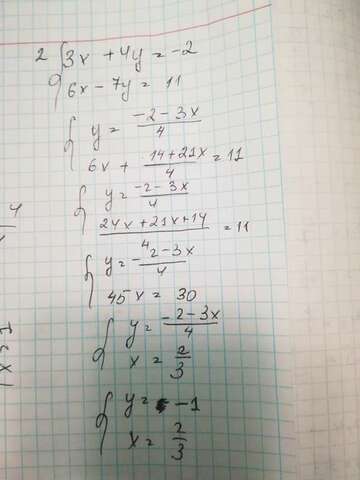 2 { 3x + 4y = -2
6x - 7y = 11
{ y = (-2 - 3x)/4
6x + (14 + 21x)/4 = 11
{ y = (-2 - 3x)/4
(24x + 21x + 14)/4 = 11
{ y = (-2 - 3x)/4
45x = 30
{ y = (-2 - 3x)/4
x = 2/3
{ y = -1
x = 2/3